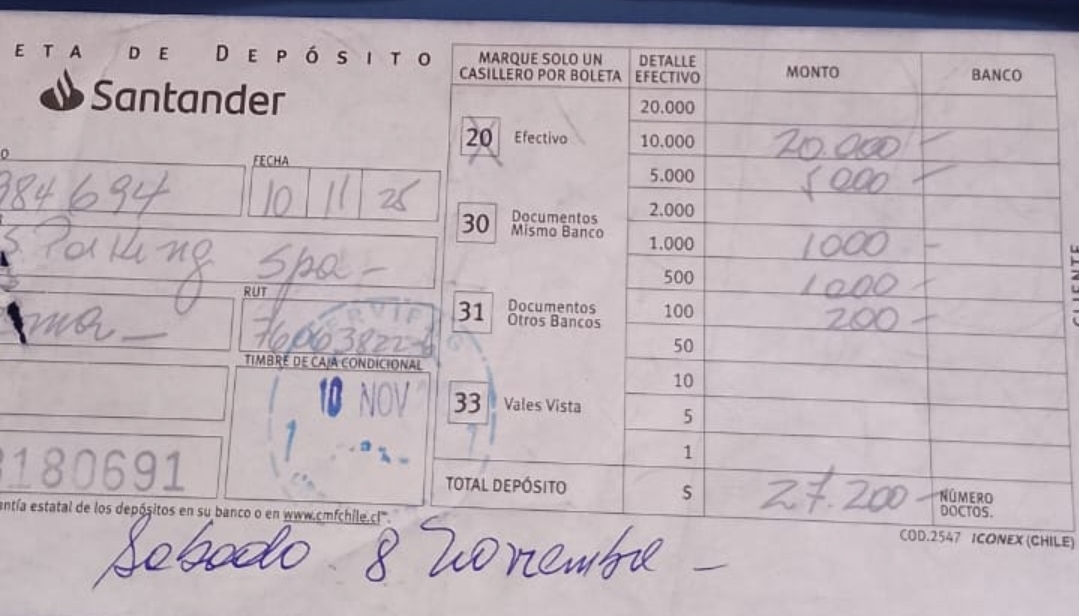 ETA DE DEPÓSITO
Santander
FECHA
984694
10 11 25
Parking Spa -
RUT
76063822-6
TIMBRE DE CAJA CONDICIONAL
10 NOV
180691
antía estatal de los depósitos en su banco o en www.cmfchile.cl".
MARQUE SOLO UN CASILLERO POR BOLETA
20 Efectivo
30 Documentos Mismo Banco
31 Documentos Otros Bancos
33 Vales Vista
DETALLE EFECTIVO MONTO BANCO
20.000
10.000 20.000 -
5.000 5000 -
2.000
1.000 1000 -
500 1000 -
100 200 -
50
10
5
1
TOTAL DEPÓSITO $ 27.200 - NÚMERO DOCTOS.
CLIENTE
COD.2547 ICONEX (CHILE)
Sabado 8 Noviembre -